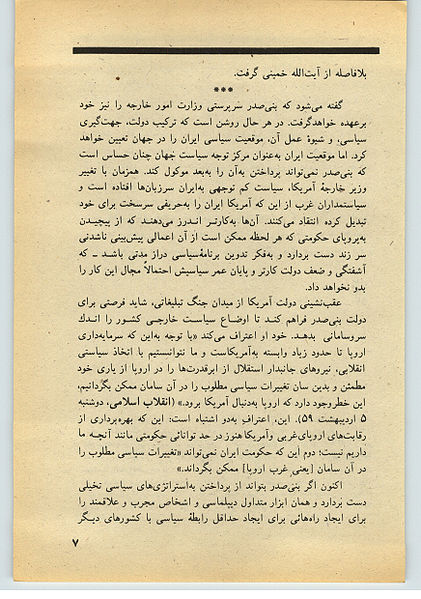 بلافاصله از آیت‌الله خمینی گرفت.
***
گفته می‌شود که بنی‌صدر سرپرستی وزارت امور خارجه را نیز خود
برعهده خواهدگرفت. در هر حال روشن است که ترکیب دولت، جهت‌گیری
سیاسی، و شیوهٔ عمل آن، موقعیت سیاسی ایران را در جهان تعیین خواهد
کرد. اما موقعیت ایران به‌عنوان مرکز توجه سیاست جهان چنان حساس است
که بنی‌صدر نمی‌تواند پرداختن به‌آن را به‌بعد موکول کند. همزمان با تغییر
وزیر خارجهٔ آمریکا، سیاست کم توجهی به‌ایران سرزبان‌ها افتاده است و
سیاستمداران غرب از این که آمریکا ایران را به‌حریفی سرسخت برای خود
تبدیل کرده انتقاد می‌کنند. آن‌ها به‌کارتر اندرز می‌دهند که از پیچیدن
به‌پروپای حکومتی که هر لحظه ممکن است از آن اعمالی پیش‌بینی ناشدنی
سر زند دست بردارد و به‌فکر تدوین برنامهٔ‌سیاسی دراز مدتی باشد ــ که
آشفتگی و ضعف دولت کارتر و پایان عمر سیاسیش احتمالاً مجال این کار را
بدو نخواهد داد.
عقب‌نشینی دولت آمریکا از میدان جنگ تبلیغاتی، شاید فرصتی برای
دولت بنی‌صدر فراهم کند تا اوضاع سیاست خارجی کشور را اندک
سروسامانی بدهد. خود او اعتراف می‌کند «با توجه به‌این که سرمایه‌داری
اروپا تا حدود زیاد وابسته به‌آمریکاست و ما نتوانستیم با اتخاذ سیاستی
انقلابی، نیروهای جانبدار استقلال از ابرقدرت‌ها را در اروپا از یاری خود
مطمئن و بدین سان تغییرات سیاسی مطلوب را در آن سامان ممکن بگردانیم،
این خطروجود دارد که اروپا به‌دنبال آمریکا برود.» (انقلاب اسلامی، دوشنبه
۵ اردیبهشت ۵۹). این، اعتراف به‌دو اشتباه است: این که بهره‌برداری از
رقابت‌های اروپای‌غربی وآمریکاهنوز در حد توانائی حکومتی مانند آنچه ما
داریم نیست؛ دوم این که حکومت ایران نمی‌تواند «تغییرات سیاسی مطلوب را
در آن سامان [یعنی غرب اروپا] ممکن بگرداند.»
اکنون اگر بنی‌صدر بتواند از پرداختن به‌استراتژی‌های سیاسی تخیلی
دست بردارد و همان ابزار متداول دیپلماسی و اشخاص مجرب و علاقمند را
برای ایجاد راه‌هائی برای ایجاد حداقل رابطهٔ سیاسی با کشورهای دیگر
۷